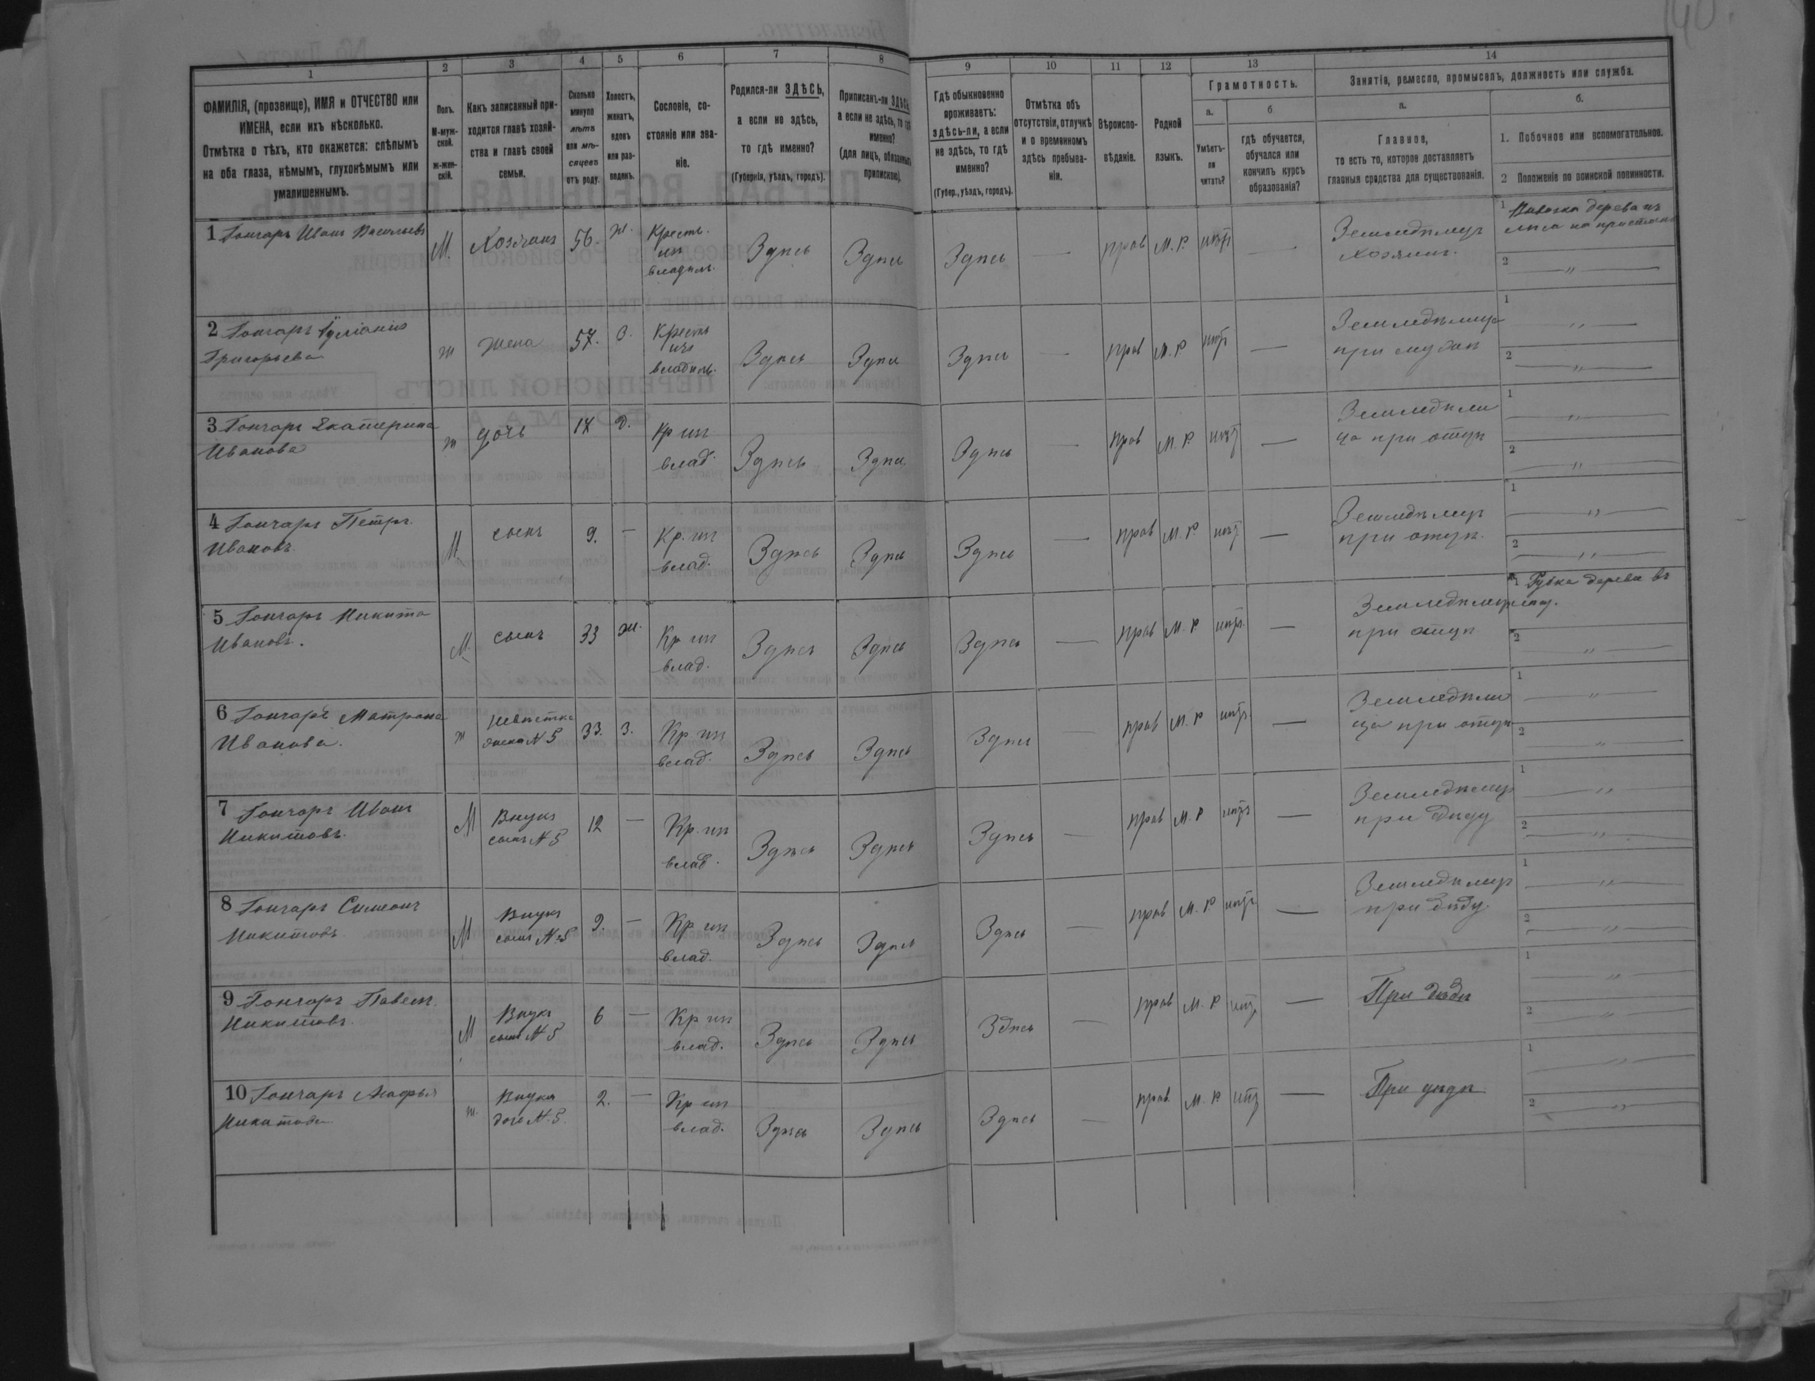 140.
1 2 3 4 5 6 7 8 9 10 11 12 13 14
ФАМИЛІЯ, (прозвище), ИМЯ и ОТЧЕСТВО или
ИМЕНА, если ихъ нѣсколько.
Отмѣтка о тѣхъ, кто окажется: слѣпымъ
на оба глаза, нѣмымъ, глухонѣмымъ или
умалишеннымъ.
Полъ.
М-муж-
ской.
Ж-жен-
скій.
Какъ записанный при-
ходится главѣ хозяй-
ства и главѣ своей
семьи.
Сколько
минуло
лѣтъ
или мѣ-
сяцевъ
отъ роду.
Холостъ,
женатъ,
вдовъ
или раз-
веденъ.
Сословіе, со-
стояніе или зва-
ніе.
Родился-ли ЗДѢСЬ,
а если не здѣсь,
то гдѣ именно?
(Губернія, уѣздъ, городъ).
Приписанъ-ли ЗДѢСЬ,
а если не здѣсь, то гдѣ
именно?
(для лицъ, обязанныхъ
припискою).
Гдѣ обыкновенно
проживаетъ:
здѣсь-ли, а если
не здѣсь, то гдѣ
именно?
(Губер., уѣздъ, городъ).
Отмѣтка объ
отсутствіи, отлучкѣ
и о временномъ
здѣсь пребыва-
ніи.
Вѣроиспо-
вѣданіе.
Родной
языкъ.
Грамотность.
а.
Умѣетъ-
ли
читать?
б.
гдѣ обучается,
обучался или
кончилъ курсъ
образованія?
Занятіе, ремесло, промыселъ, должность или служба.
а.
Главное,
то есть то, которое доставляетъ
главныя средства для существованія.
б.
1. Побочное или вспомогательное.
2 Положеніе по воинской повинности.
1 Гончаръ Иванъ Васильевъ М. Хозяинъ 56. ж. Кресть. Здѣсь Здѣсь Здѣсь — прав М. Р. нѣтъ — Земледѣлец
из
владѣльч.
хозяинъ.
1 Вывозка дерева изъ
лѣса на пристань
2 — „ —
2 Гончаръ
Григорьева ж жена 57. З. Кресть Здѣсь Здѣсь Здѣсь — прав М. Р нѣтъ —
изъ
владѣльч.
при мужѣ
1 „
2 „
3 Гончаръ Екатерина ж дочь Д. Кр из Здѣсь Здѣсь Здѣсь — прав М. Р нѣтъ — Земледѣли
Иванова
влад.
ца при отцѣ
1 „
2 „
4 Гончаръ Петръ М. сынъ 9. — Кр. из Здѣсь Здѣсь Здѣсь — прав М. Р нѣтъ — Земледѣлец
Ивановъ
влад.
при отцѣ.
1 „
2 „
5 Гончаръ Никита М. сынъ 33 ж. Кр из Здѣсь Здѣсь Здѣсь — прав М. Р нѣтъ — Земледѣлец
Ивановъ.
влад.
при отцѣ
1 Рубка дерева въ
лѣсу.
2 „
6 Гончаръ Матрона ж невѣстка 33. З. Кр из Здѣсь Здѣсь Здѣсь — прав М. Р нѣтъ — Земледѣли
Иванова.
жена № 5
влад.
ца при отцѣ
1 „
2 „
7 Гончаръ Иванъ М Внукъ 12 — Кр. из Здѣсь Здѣсь Здѣсь — прав М. Р нѣтъ — Земледѣлец
Никитовъ.
сынъ № 5
влад.
при дѣду
1 „
2 „
8 Гончаръ Симеонъ М Внукъ 9. — Кр из Здѣсь Здѣсь Здѣсь — прав М. Р нѣтъ — Земледѣлец
Никитовъ
сынъ № 5
влад.
при дѣду.
1 „
2 „
9 Гончаръ Павелъ М Внукъ 6 — Кр из Здѣсь Здѣсь Здѣсь — прав М. Р нѣтъ — При дѣдѣ
Никитовъ.
сынъ № 5
влад.
1 „
2 „
10 Гончаръ Агафья ж. Внука 2. — Кр из Здѣсь Здѣсь Здѣсь — прав М. Р нѣтъ — При дѣдѣ
Никитова
дочь № 5.
влад.
1 „
2 „